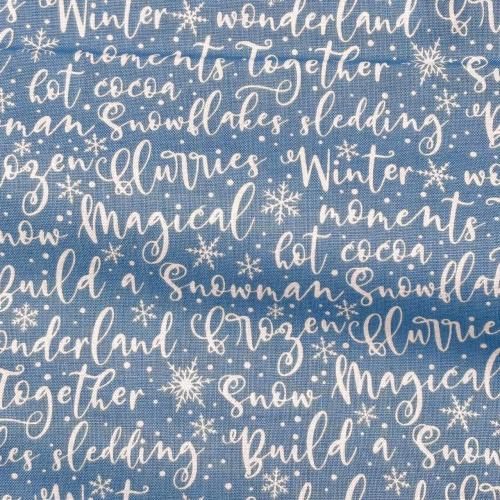 Winter wonderland Fro
moments Together
hot cocoa S
man Snowflakes sledding
ozen Flurries Winter wo
now Magical moments
hot cocoa
Build a Snowman Snowfla
onderland Frozen Flurries
Together Snow Magical
es sledding Build a Snow
Winter moments